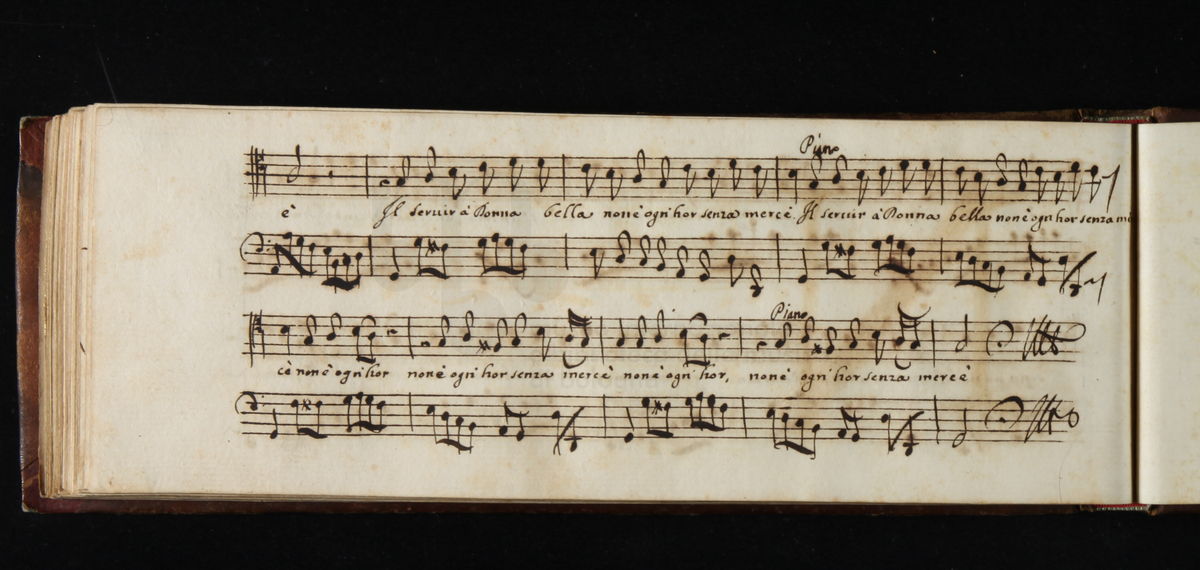 Piano
è Il seruir à Donna bella non è ogni hor senza mercè. Il seruir à Donna bella non è ogni hor senza mer
Piano
cè non è ogni hor non è ogni hor senza mercè non è ogni hor, non è ogni hor senza mercè